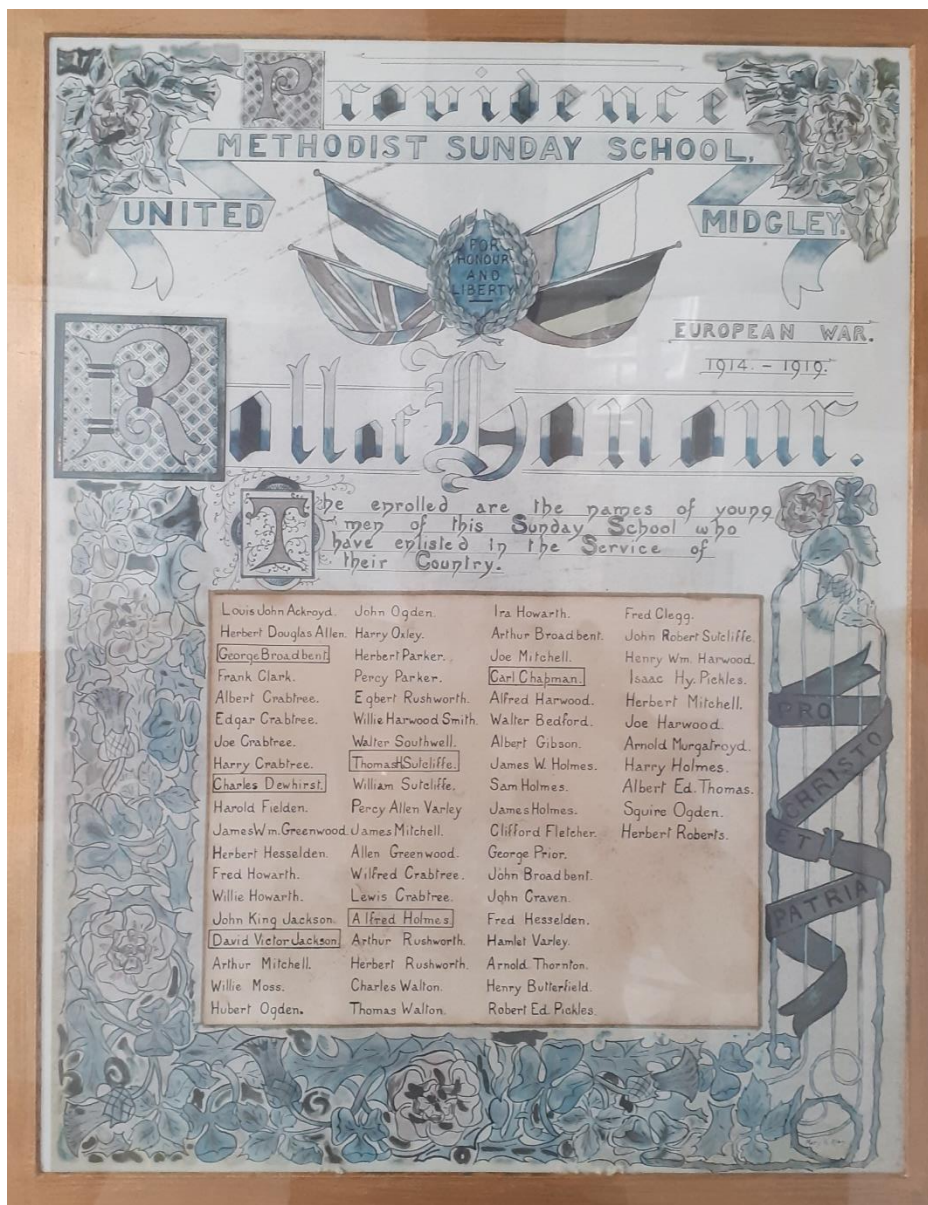 Providence
METHODIST SUNDAY SCHOOL,
UNITED MIDGLEY.
FOR
HONOUR
AND
LIBERTY
EUROPEAN WAR.
1914. – 1919.
Roll of Honour.
The enrolled are the names of young
men of this Sunday School who
have enlisted in the Service of
their Country.
Louis John Ackroyd.
Herbert Douglas Allen.
George Broadbent.
Frank Clark.
Albert Crabtree.
Edgar Crabtree.
Joe Crabtree.
Harry Crabtree.
Charles Dewhirst.
Harold Fielden.
James Wm. Greenwood.
Herbert Hesselden.
Fred Howarth.
Willie Howarth.
John King Jackson.
David Victor Jackson.
Arthur Mitchell.
Willie Moss.
Hubert Ogden.
John Ogden.
Harry Oxley.
Herbert Parker.
Percy Parker.
Egbert Rushworth.
Willie Harwood Smith.
Walter Southwell.
Thomas H Sutcliffe.
William Sutcliffe.
Percy Allen Varley
James Mitchell.
Allen Greenwood.
Wilfred Crabtree.
Lewis Crabtree.
Alfred Holmes.
Arthur Rushworth.
Herbert Rushworth.
Charles Walton.
Thomas Walton.
Ira Howarth.
Arthur Broadbent.
Joe Mitchell.
Carl Chapman.
Alfred Harwood.
Walter Bedford.
Albert Gibson.
James W. Holmes.
Sam Holmes.
James Holmes.
Clifford Fletcher.
George Prior.
John Broadbent.
John Craven.
Fred Hesselden.
Hamlet Varley.
Arnold Thornton.
Henry Butterfield.
Robert Ed. Pickles.
Fred Clegg.
John Robert Sutcliffe.
Henry Wm. Harwood.
Isaac Hy. Pickles.
Herbert Mitchell.
Joe Harwood.
Arnold Murgatroyd.
Harry Holmes.
Albert Ed. Thomas.
Squire Ogden.
Herbert Roberts.
PRO
CHRISTO
ET
PATRIA